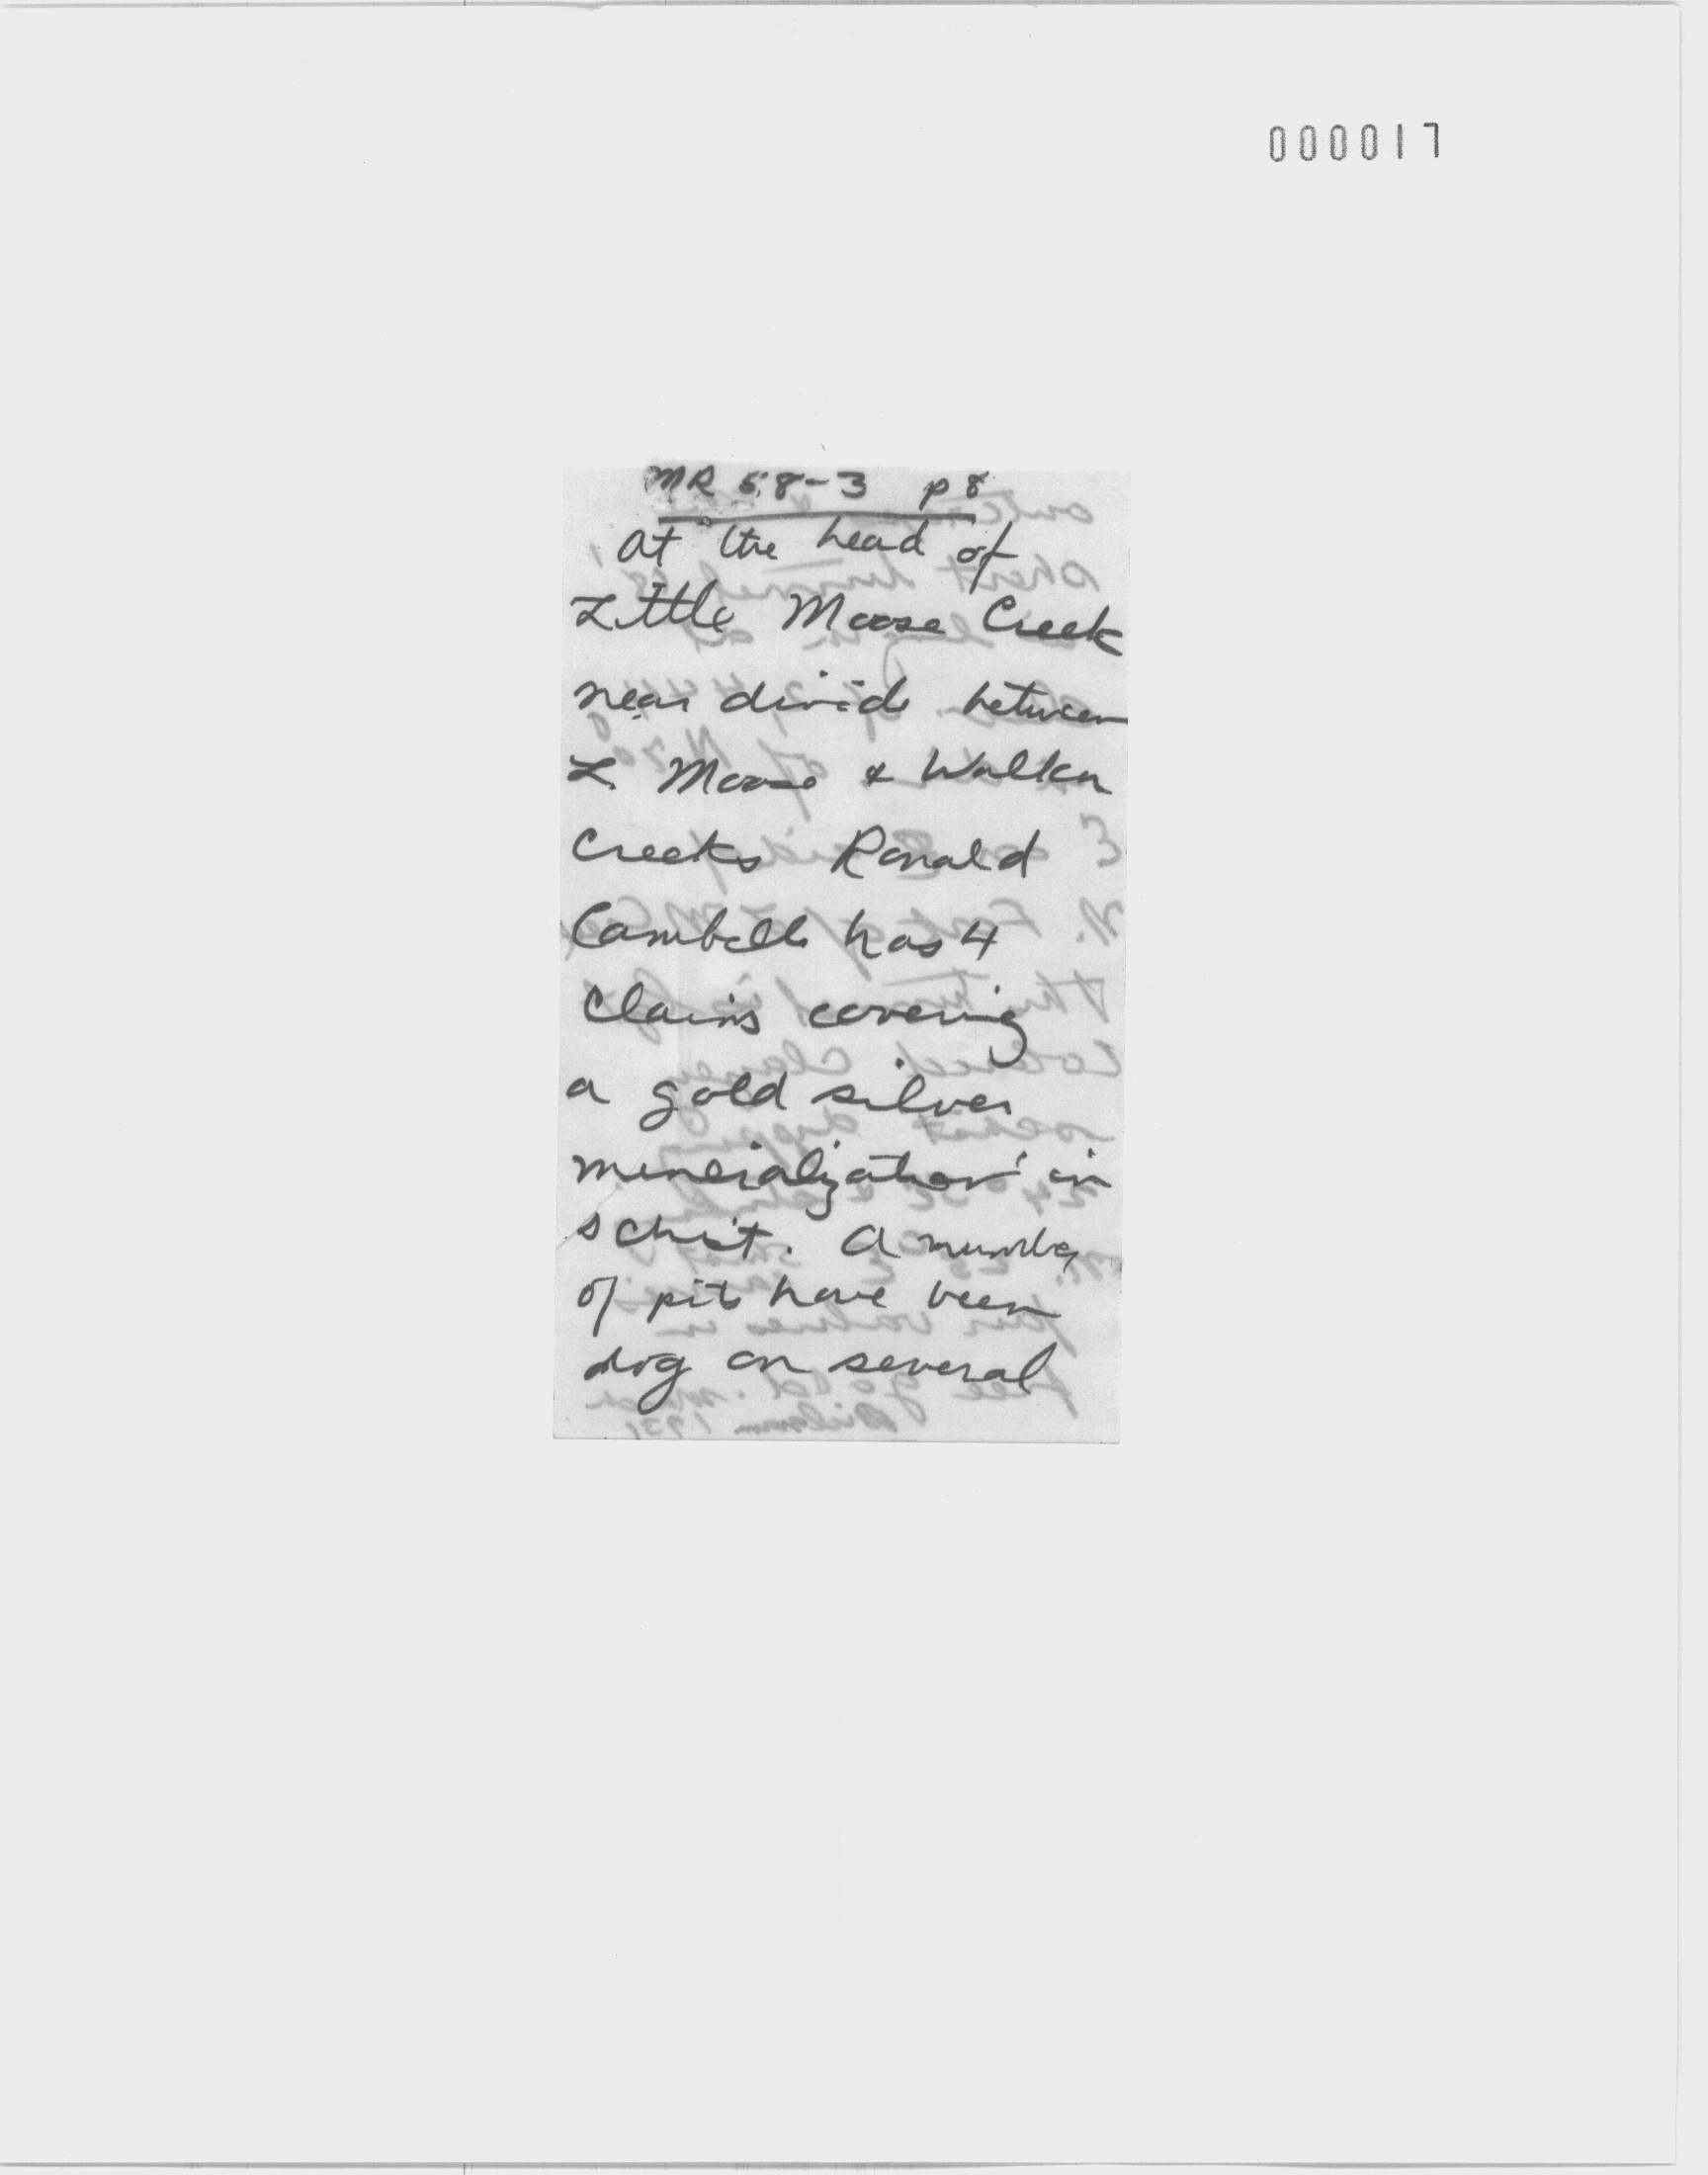 000017
MR 58-3 p 8
At the head of
Little Moose Creek
near divide between
L. Moose & Walker
Creeks Ronald
Cambell has 4
Claims covering
a gold silver
mineralization in
schist. A number
of pits have been
dog on several